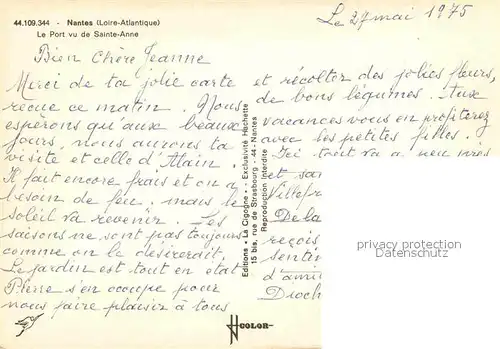 44.109.344 - Nantes (Loire-Atlantique)
Le Port vu de Sainte-Anne
Le 27 mai 1975
Bien Chère Jeanne
Merci de ta jolie carte
reçue ce matin. Nous
espérons qu'aux beaux
jours, nous aurons ta
visite et celle d'Alain.
Il fait encore frais et on a
besoin de feu, mais le
soleil va revenir. Les
saisons ne sont pas toujours
comme on le désirerait.
Le jardin est tout en état
Pierre s'en occupe pour
nous faire plaisir à tous
Editions « La Cigogne » - Exclusivité Hachette
15 bis, rue de Strasbourg - 44 - Nantes
Reproduction Interdite
et récolter des jolies fleurs,
de bons légumes. Aux
vacances vous en profiterez
avec les petites filles.
Ici tout va a peu près
et sa
Villefr
De la
reçois
sentim
d'ami
Dioch
privacy protection
Datenschutz
COLOR